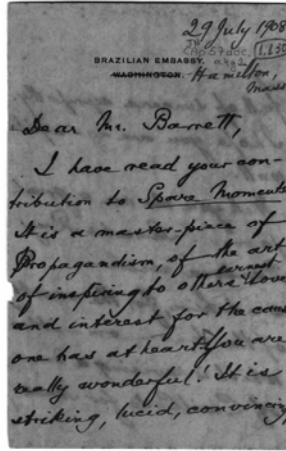 29 July 1908
BRAZILIAN EMBASSY.
WASHINGTON.
Hamilton,
Mass
Dear Mr. Barrett,
I have read your con-
tribution to Spare Moments
It is a master-piece of
Propagandism, of the art
of inspiring to others earnest love
and interest for the cause
one has at heart. You are
really wonderful! It is
striking, lucid, convincing,